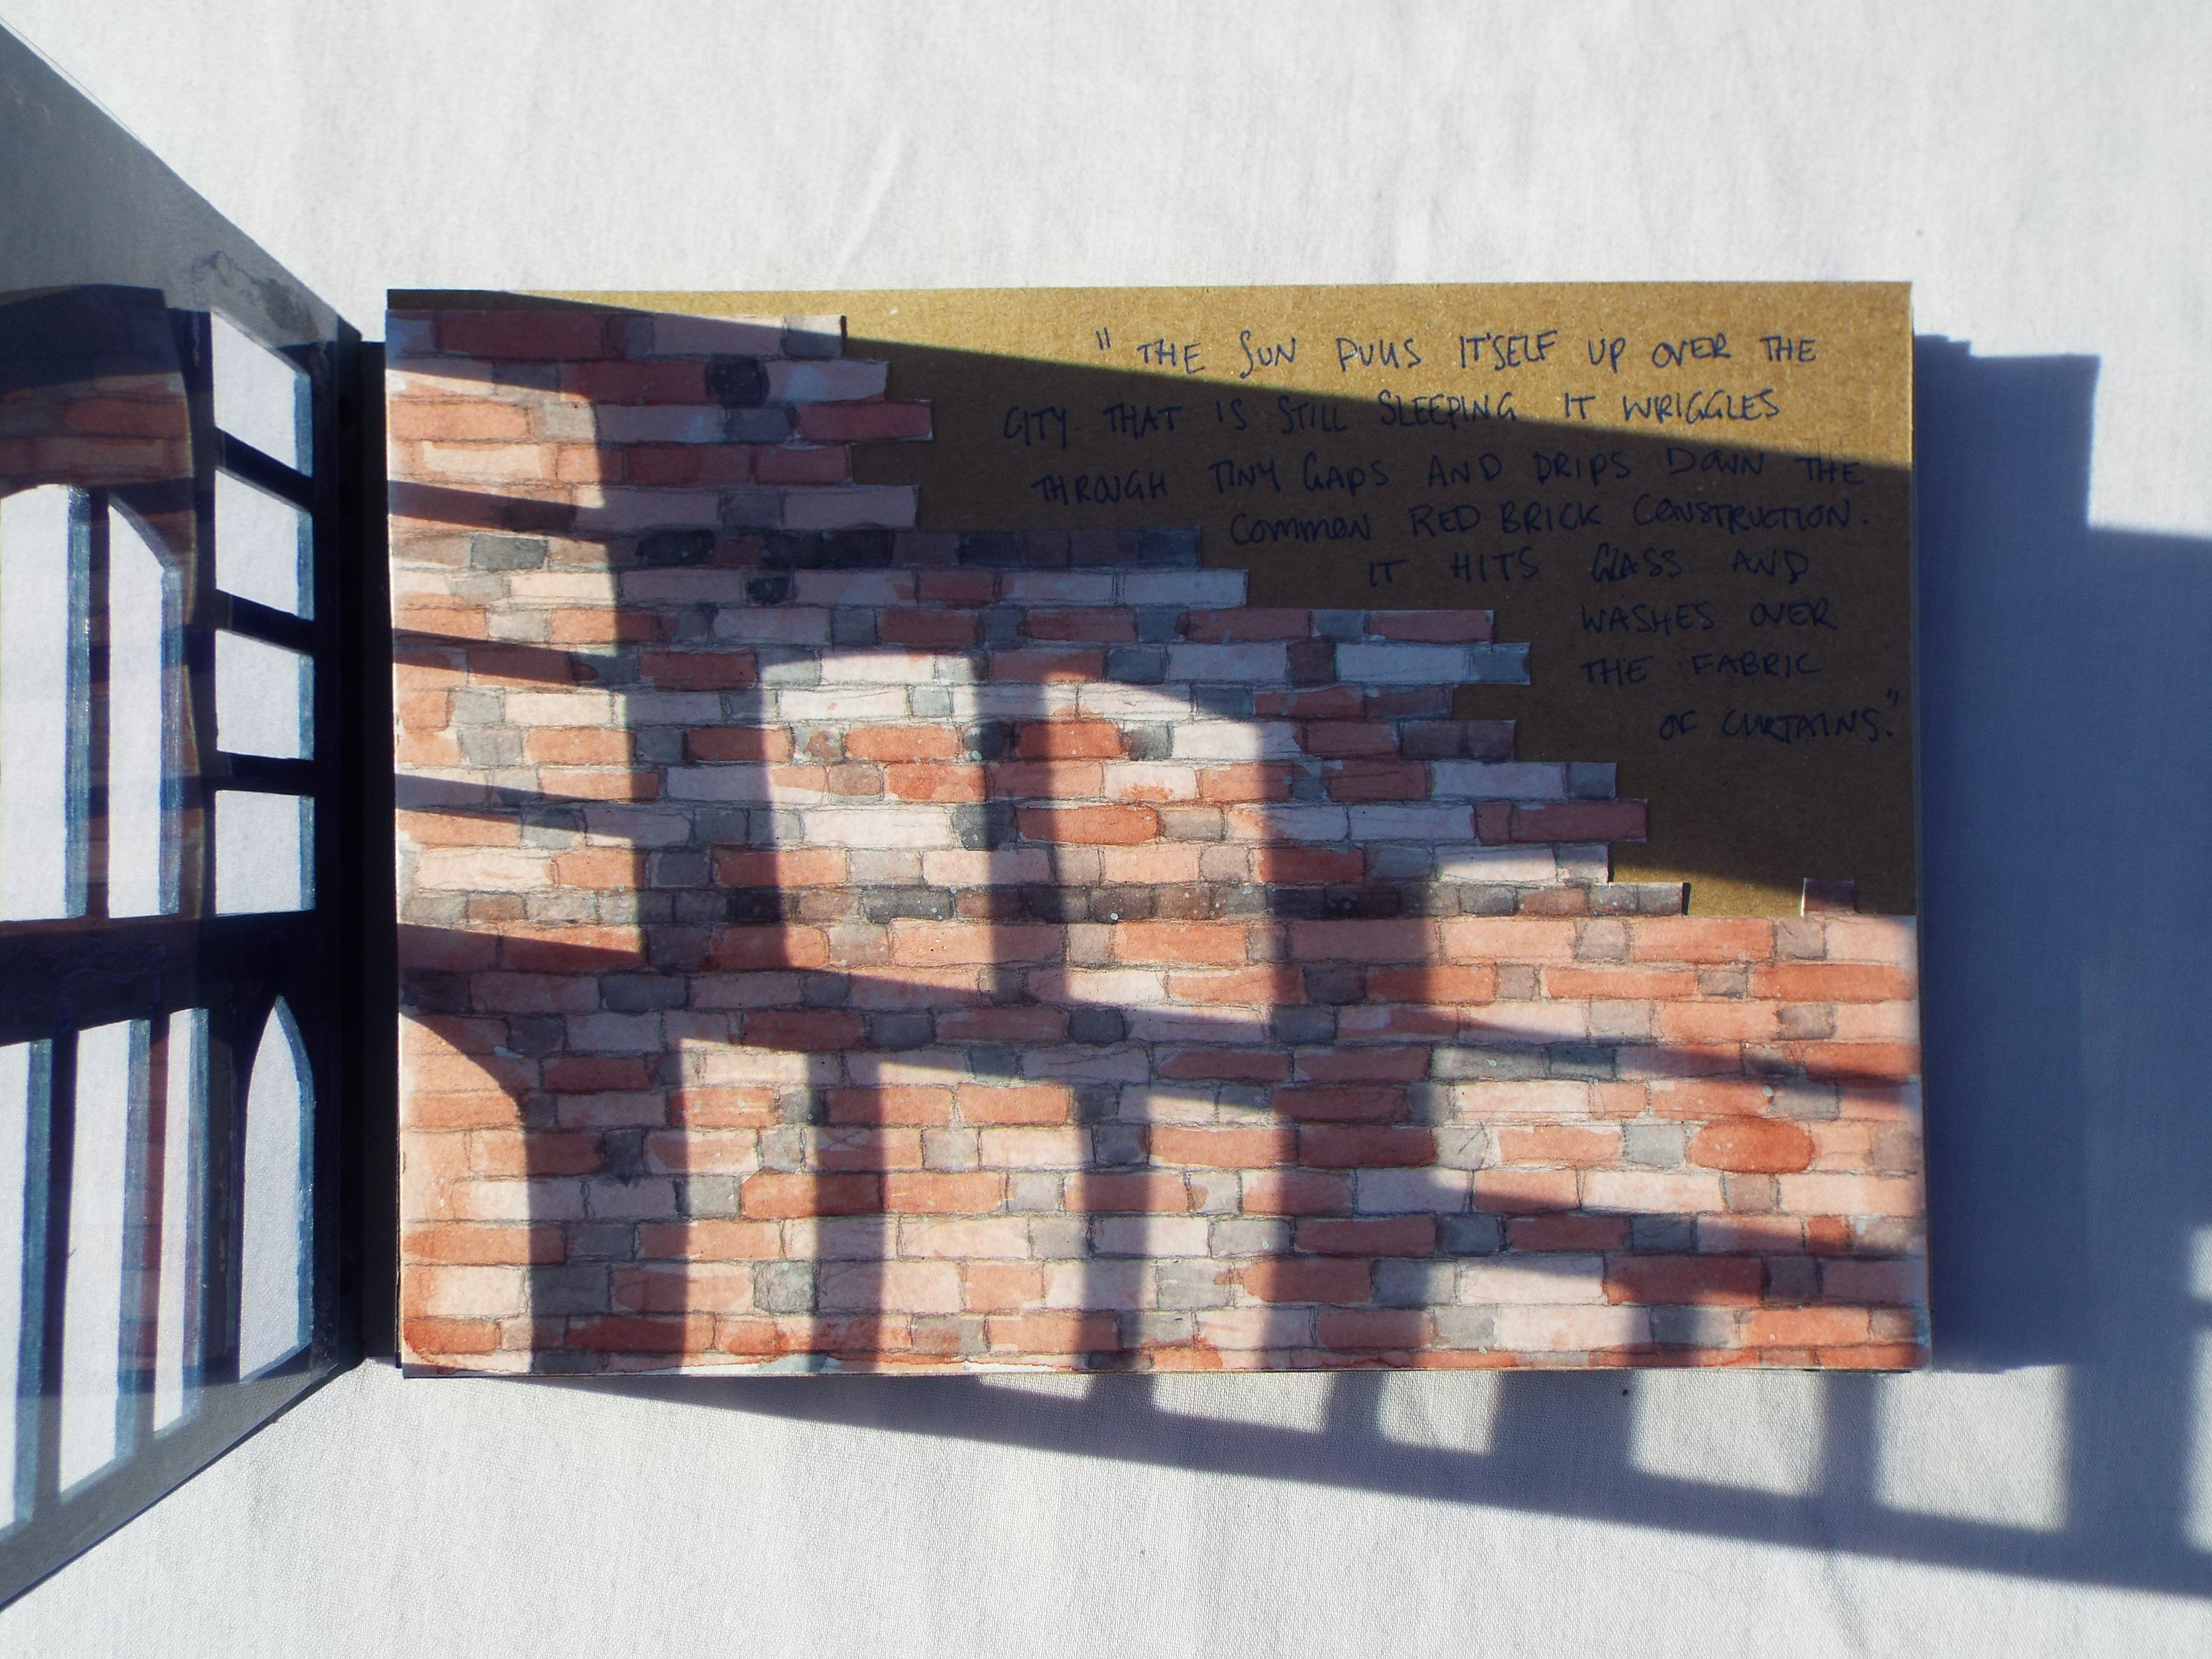 "THE SUN PULLS IT'SELF UP OVER THE
CITY THAT IS STILL SLEEPING. IT WRIGGLES
THROUGH TINY GAPS AND DRIPS DOWN THE
COMMON RED BRICK CONSTRUCTION.
IT HITS GLASS AND
WASHES OVER
THE FABRIC
OF CURTAINS."